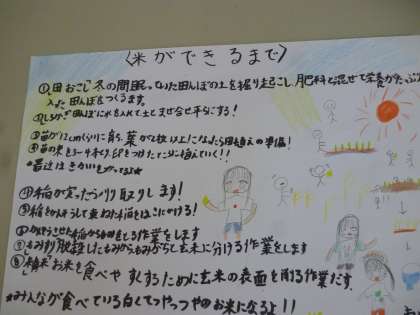 〈米ができるまで〉
①田おこし冬の間眠っていた田んぼの土を掘り起こし、肥料と混ぜて栄養がたっぷり
入った田んぼをつくります。
②しろかき田んぼに水を入れて土とまぜ合せ平らにする！
③苗が12cmくらいに育ち、葉が2枚以上になったら田植えの準備！
苗の束を3～4本とり、印をつけたところに植えていく！！
④稲が実ったらかり取りします！
⑤稲をかんそうして
⑥かんそうさせた稲から をとる作業をします
⑦もみすり脱穀したもみからもみがらと玄米に分ける作業をします
⑧精米 お米を食べやすくするために玄米の表面を削る作業です。
★みんなが食べている白くてつやつやのお米になるよ！！